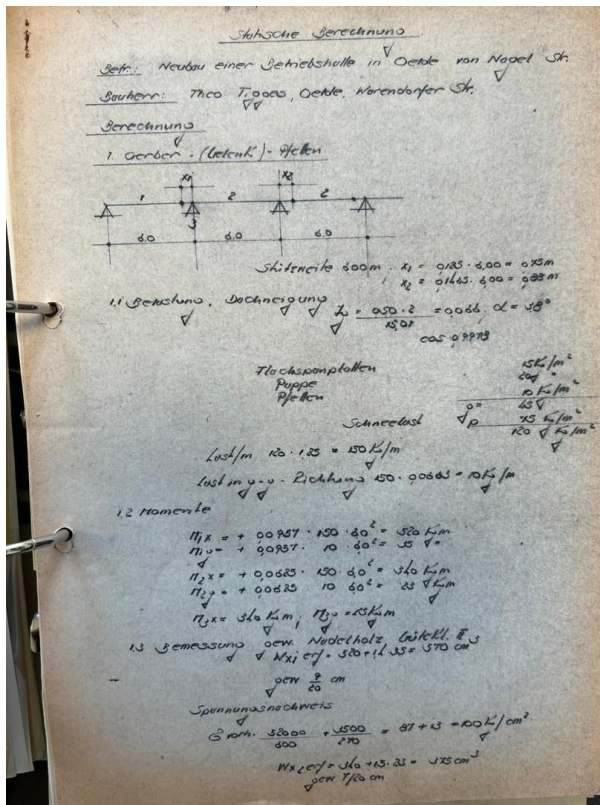 Statische Berechnung
Betr.: Neubau einer Betriebshalle in Oelde von Nagel Str.
Bauherr: Theo Tigges, Oelde, Warendorfer Str.
Berechnung
1. Gerber-(Gelenk)-Pfetten
x1 x2
1 2 2
3
6.0 6.0 6.0
Stützweite 6.00 m. x1 = 0,125 · 6,00 = 0,75 m
x2 = 0,1465 · 6,00 = 0,88 m
1.1 Belastung, Dachneigung tg = 0,066, α = 3,8°
cos 0,9979
Flachspanplatten 15 Kg/m²
Pappe 20 "
Pfetten 10 Kg/m²
g = 45
Schneelast p 75 Kg/m²
120 Kg/m²
Last/m 120 · 1,25 = 150 Kg/m
Last in y-y- Richtung 150 · 0,0663 = 10 Kg/m
1.2 Momente
M1x = + 0,0957 · 150 · 6,0² = 520 Kgm
M1y = + 0,0957 · 10 · 6,0² = 35 "
M2x = + 0,0625 · 150 · 6,0² = 340 Kgm
M2y = + 0,0625 10 6,0² = 23 Kgm
M3x = 340 Kgm, M3y = 23 Kgm
1.3 Bemessung gew. Nadelholz, Gütekl. II
Wx1 erf = 520 + 35 = 570 cm³
gew 9/20 cm
Spannungsnachweis
52000/600 + 3500/270 = 87 + 13 = 100 Kg/cm²
Wx2 erf = 340 + 1,5 · 23 = 375 cm³
gew 7/20 cm